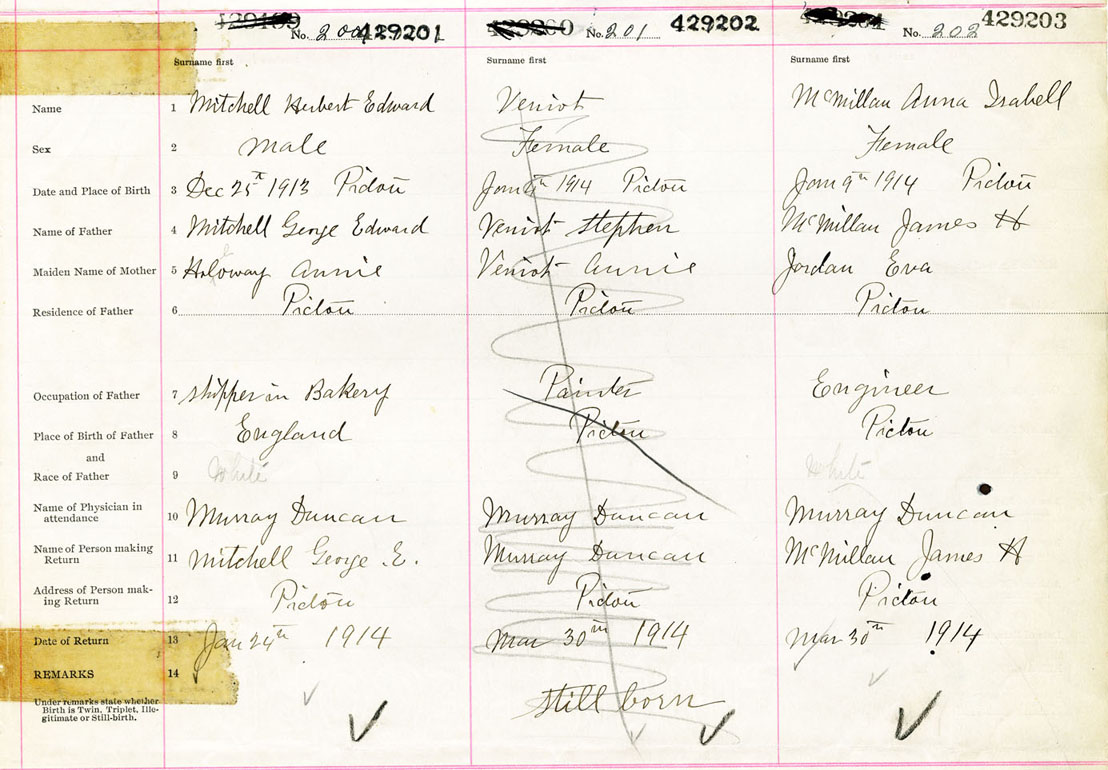 No. 200 429201 No. 201 429202 No. 202 429203
Surname first Surname first Surname first
Name 1 Mitchell Herbert Edward Veniot McMillan Anna Isabell
Sex 2 Male Female Female
Date and Place of Birth 3 Dec 25th 1913 Pictou Jan 1914 Pictou Jan 9th 1914 Pictou
Name of Father 4 Mitchell George Edward Veniot Stephen McMillan James H
Maiden Name of Mother 5 Holoway Annie Veniot Annie Jordan Eva
Residence of Father 6 Pictou Pictou Pictou
Occupation of Father 7 Shipper in Bakery Painter Engineer
Place of Birth of Father 8 England Pictou Pictou
and
Race of Father 9 White White
Name of Physician in
attendance 10 Murray Duncan Murray Duncan Murray Duncan
Name of Person making
Return 11 Mitchell George .E. Murray Duncan McMillan James H
Address of Person mak-
ing Return 12 Pictou Pictou Pictou
Date of Return 13 Jan 24th 1914 Mar 30th 1914 Mar 30th 1914
REMARKS 14
Under remarks state whether
Birth is Twin, Triplet, Ille-
gitimate or Still-birth.
Still born